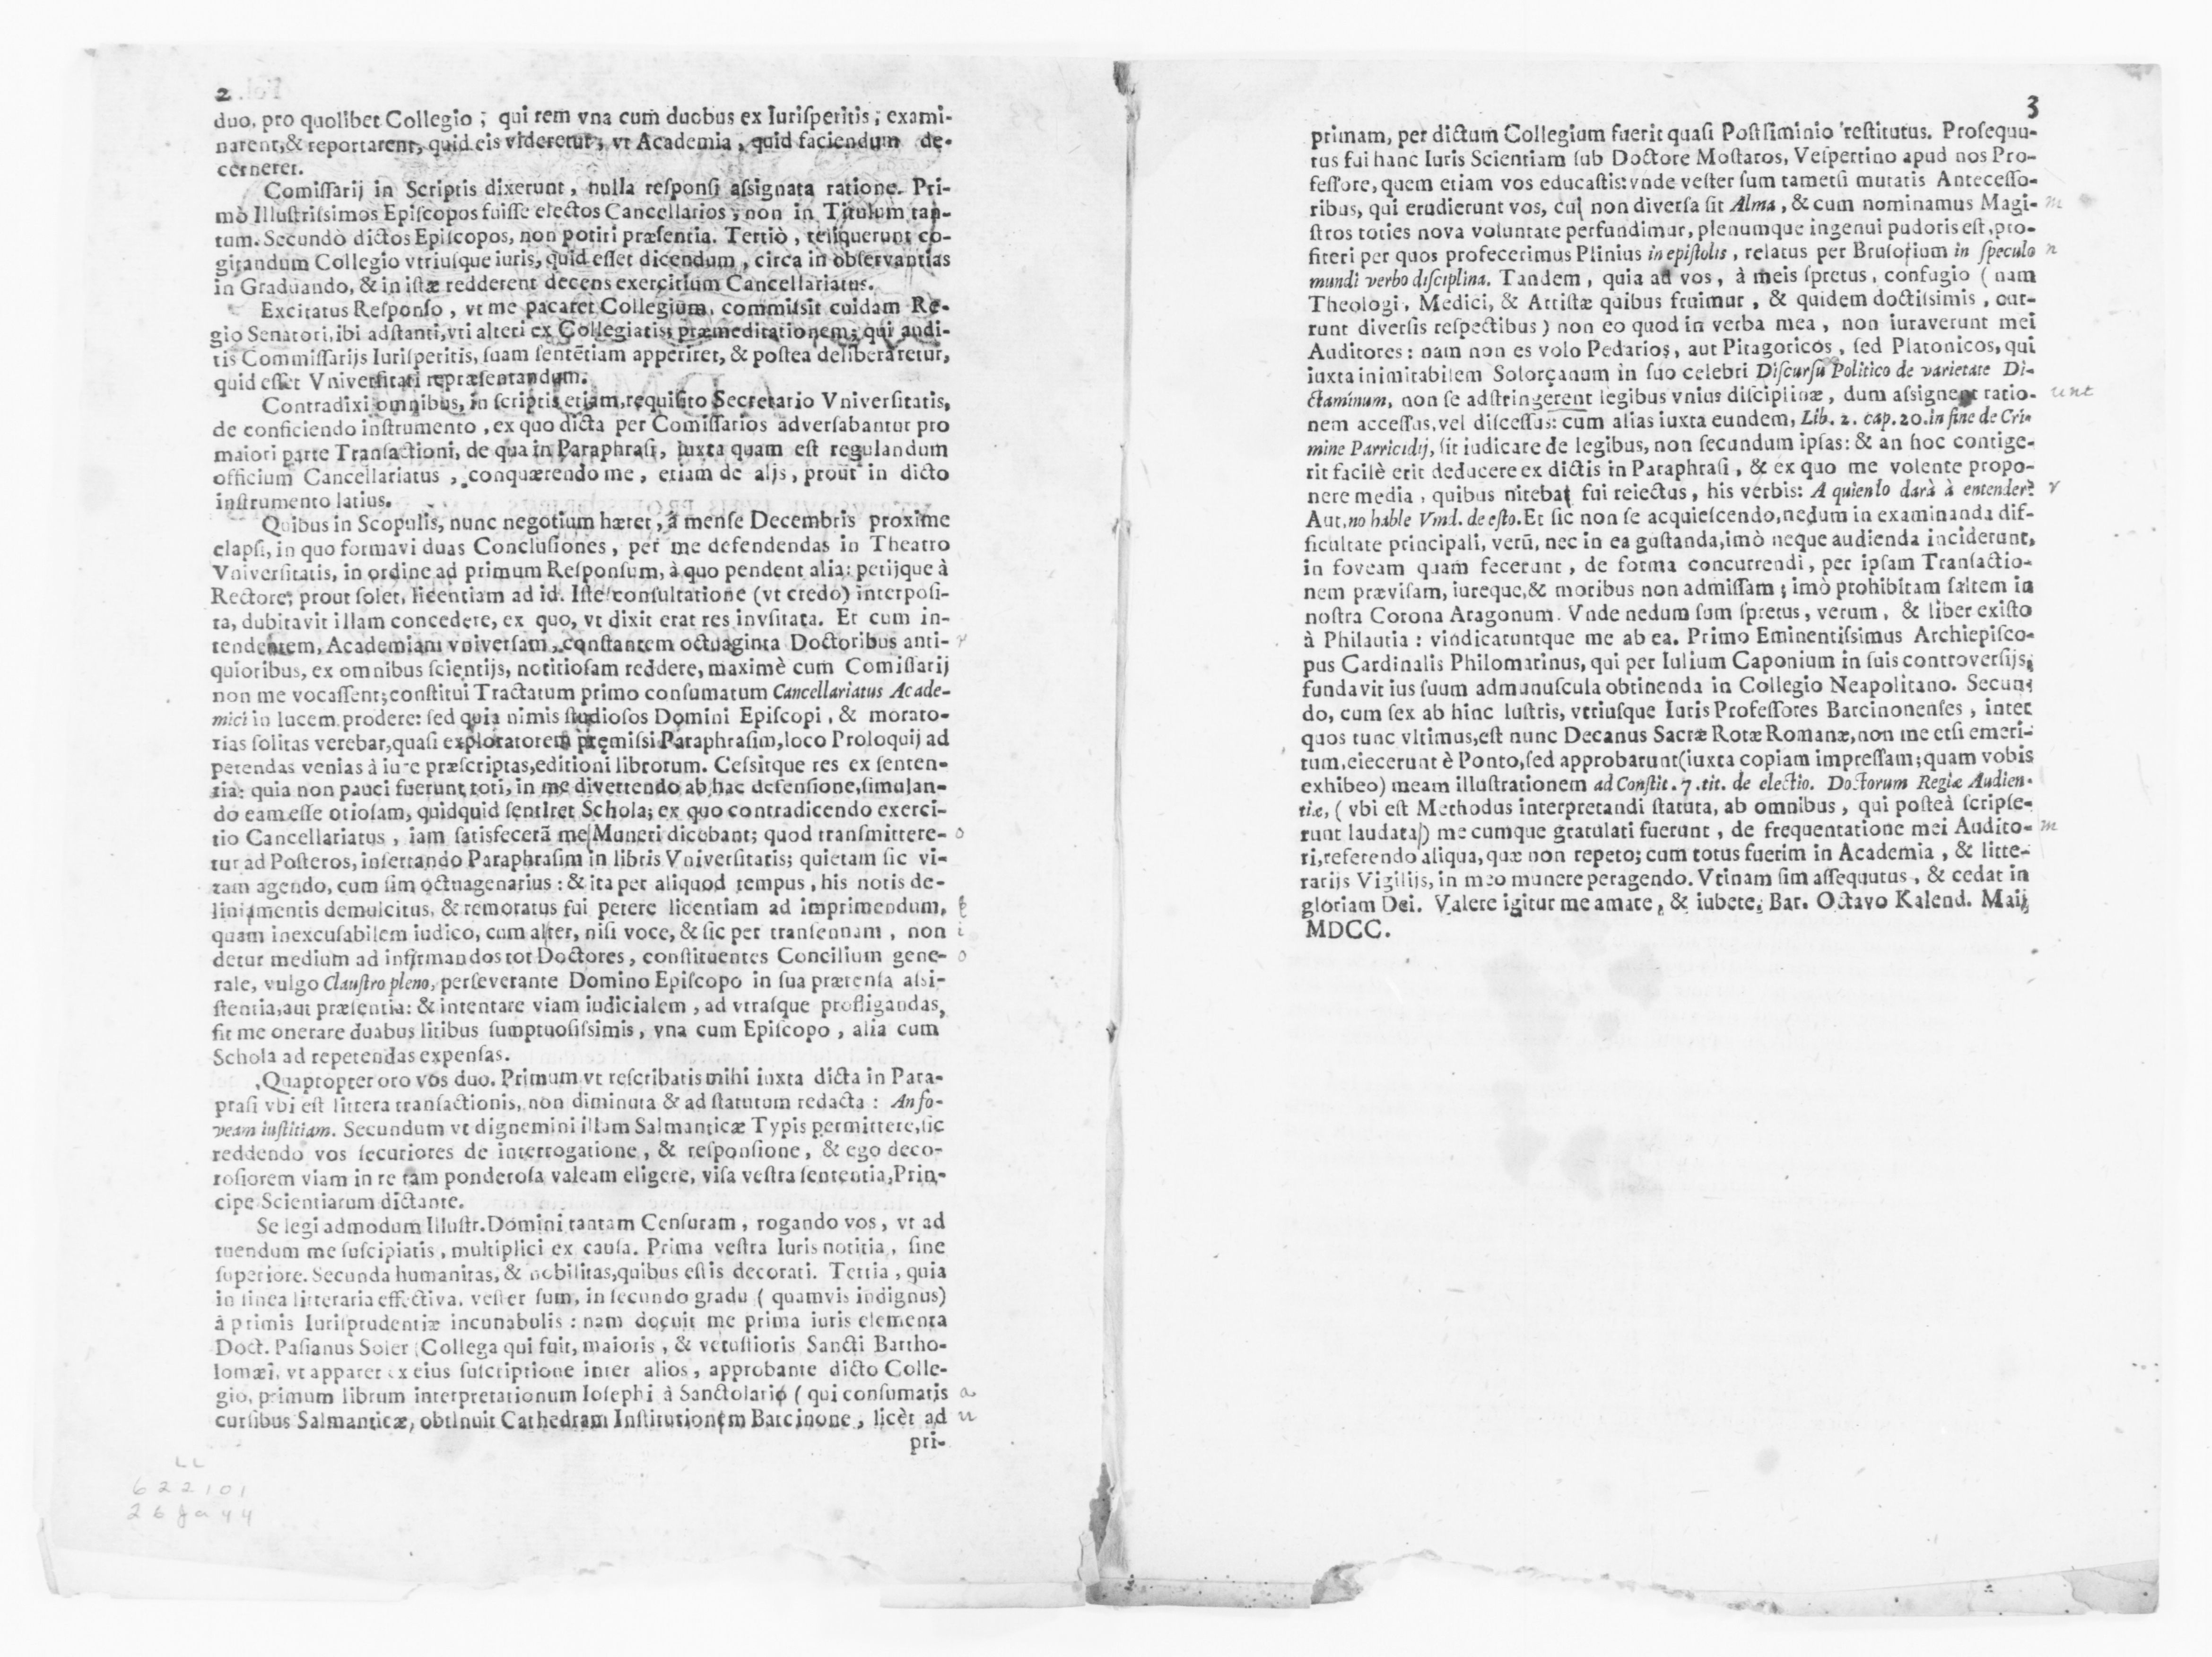 2
duo, pro quolibet Collegio; qui rem vna cum duobus ex Iurisperitis; exami-
narent,& reportarent, quid eis videretur, vt Academia, quid faciendum de-
cerneret.
Comissarij in Scriptis dixerunt, nulla responsi assignata ratione. Pri-
mò Illustrissimos Episcopos fuisse electos Cancellarios, non in Titulum tan-
tum. Secundò dictos Episcopos, non potiri præsentia. Tertiò, reliquerunt co-
gitandum Collegio vtriusque iuris, quid esset dicendum, circa in observantias
in Graduando, & in istæ redderent decens exercitium Cancellariatus.
Excitatus Responso, vt me pacaret Collegium, commissit cuidam Re-
gio Senatori,ibi adstanti,vti alteri ex Collegiatis, præmeditationem; qui audi-
tis Commissarijs Iurisperitis, suam sentẽtiam apperiret, & postea deliberaretur,
quid esset Vniversitati repræsentandum.
Contradixi omnibus, in scriptis etiam,requisito Secretario Vniversitatis,
de conficiendo instrumento, ex quo dicta per Comissarios adversabantur pro
maiori parte Transactioni, de qua in Paraphrasi, iuxta quam est regulandum
officium Cancellariatus, conquærendo me, etiam de alijs, prout in dicto
instrumento latius.
Quibus in Scopulis, nunc negotium hæret, à mense Decembris proxime
elapsi, in quo formavi duas Conclusiones, per me defendendas in Theatro
Vniversitatis, in ordine ad primum Responsum, à quo pendent alia: petijque à
Rectore, prout solet, licentiam ad id. Iste consultatione (vt credo) interposi-
ta, dubitavit illam concedere, ex quo, vt dixit erat res invsitata. Et cum in-
tendentem, Academiam vniversam, constantem octuaginta Doctoribus anti- r
quioribus, ex omnibus scientijs, notitiosam reddere, maximè cum Comissarij
non me vocassent; constitui Tractatum primo consumatum Cancellariatus Acade-
mici in lucem prodere: sed quia nimis studiosos Domini Episcopi, & morato-
rias solitas verebar,quasi exploratorem præmissi Paraphrasim,loco Proloquij ad
petendas venias à iure præscriptas,editioni librorum. Cessitque res ex senten-
tia: quia non pauci fuerunt toti, in me divertendo ab hac defensione,simulan-
do eam esse otiosam, quidquid sentiret Schola; ex quo contradicendo exerci-
tio Cancellariatus, iam satisfecerã me Muneri dicebant; quod transmittere- o
tur ad Posteros, insertando Paraphrasim in libris Vniversitatis; quietam sic vi-
tam agendo, cum sim octuagenarius: & ita per aliquod tempus, his notis de-
liniamentis demulcitus, & remoratus fui petere licentiam ad imprimendum,
quam inexcusabilem iudico, cum alter, nisi voce, & sic per transennam, non i
detur medium ad infirmandos tot Doctores, constituentes Concilium gene- o
rale, vulgo Claustro pleno, perseverante Domino Episcopo in sua prætensa assi-
stentia,aut præsentia: & intentare viam iudicialem, ad vtrasque profligandas,
sit me onerare duabus litibus sumptuosissimis, vna cum Episcopo, alia cum
Schola ad repetendas expensas.
Quapropter oro vos duo. Primum vt rescribatis mihi iuxta dicta in Para-
prasi vbi est littera transactionis, non diminuta & ad statutum redacta: An fo-
veam iustitiam. Secundum vt dignemini illam Salmanticæ Typis permittere,sic
reddendo vos securiores de interrogatione, & responsione, & ego deco-
rosiorem viam in re tam ponderosa valeam eligere, visa vestra sententia,Prin-
cipe Scientiarum dictante.
Se legi admodum Illustr.Domini tantam Censuram, rogando vos, vt ad
tuendum me suscipiatis, multiplici ex causa. Prima vestra Iuris notitia, sine
superiore. Secunda humanitas, & nobilitas,quibus estis decorati. Tertia, quia
in linea litteraria effectiva, vester sum, in secundo gradu (quamvis indignus)
à primis Iurisprudentiæ incunabulis: nam docuit me prima iuris elementa
Doct. Pasianus Soler (Collega qui fuit, maioris, & vetustioris Sancti Bartho-
lomæi, vt apparet ex eius suscriptione inter alios, approbante dicto Colle-
gio, primum librum interpretationum Iosephi à Sanctolario (qui consumatis a
cursibus Salmanticæ, obtinuit Cathedram Institutionem Barcinone, licèt ad u
pri-
LL
622101
26 Ja 44
3
primam, per dictum Collegium fuerit quasi Postsiminio restitutus. Prosequu-
tus fui hanc Iuris Scientiam sub Doctore Mostaros, Vespertino apud nos Pro-
fessore, quem etiam vos educastis: vnde vester sum tametsi mutatis Antecesso-
ribus, qui erudierunt vos, cui non diversa sit Alma, & cum nominamus Magi- m
stros toties nova voluntate perfundimur, plenumque ingenui pudoris est,pro-
fiteri per quos profecerimus Plinius in epistolis, relatus per Brusonium in speculo n
mundi verbo disciplina. Tandem, quia ad vos, à meis spretus, confugio (nam
Theologi, Medici, & Artistæ quibus fruimur, & quidem doctissimis, cur-
runt diversis respectibus) non eo quod in verba mea, non iuraverunt mei
Auditores: nam non es volo Pedarios, aut Pitagoricos, sed Platonicos, qui
iuxta inimitabilem Solorçanum in suo celebri Discursu Politico de varietate Di-
ctaminum, non se adstringerent legibus vnius disciplinæ, dum assignent ratio- unt
nem accessus,vel discessus: cum alias iuxta eundem, Lib. 2. cap. 20.in fine de Cri-
mine Parricidij, sit iudicare de legibus, non secundum ipsas: & an hoc contige-
rit facilè erit deducere ex dictis in Paraphrasi, & ex quo me volente propo-
nere media, quibus nitebat fui reiectus, his verbis: A quien lo darà à entender? r
Aut,no hable Vmd. de esto.Et sic non se acquiescendo,nedum in examinanda dif-
ficultate principali, verũ, nec in ea gustanda,imò neque audienda inciderunt,
in foveam quam fecerunt, de forma concurrendi, per ipsam Transactio-
nem prævisam, iureque,& moribus non admissam; imò prohibitam saltem in
nostra Corona Aragonum. Vnde nedum sum spretus, verum, & liber existo
à Philautia: vindicatuntque me ab ea. Primo Eminentissimus Archiepisco-
pus Cardinalis Philomarinus, qui per Iulium Caponium in suis controversijs,
fundavit ius suum admunuscula obtinenda in Collegio Neapolitano. Secun-
do, cum sex ab hinc lustris, vtriusque Iuris Professores Barcinonenses, inter
quos tunc vltimus,est nunc Decanus Sacræ Rotæ Romanæ,non me etsi emeri-
tum,eiecerunt è Ponto,sed approbarunt(iuxta copiam impressam;quam vobis
exhibeo) meam illustrationem ad Constit. 7. tit. de electio. Doctorum Regiæ Audien-
tiæ, (vbi est Methodus interpretandi statuta, ab omnibus, qui posteà scripse-
runt laudata) me cumque gratulati fuerunt, de frequentatione mei Audito- m
ri,referendo aliqua,quæ non repeto; cum totus fuerim in Academia, & litte-
rarijs Vigilijs, in meo munere peragendo. Vtinam sim assequutus, & cedat in
gloriam Dei. Valete igitur me amate, & iubete. Bar. Octavo Kalend. Maij
MDCC.